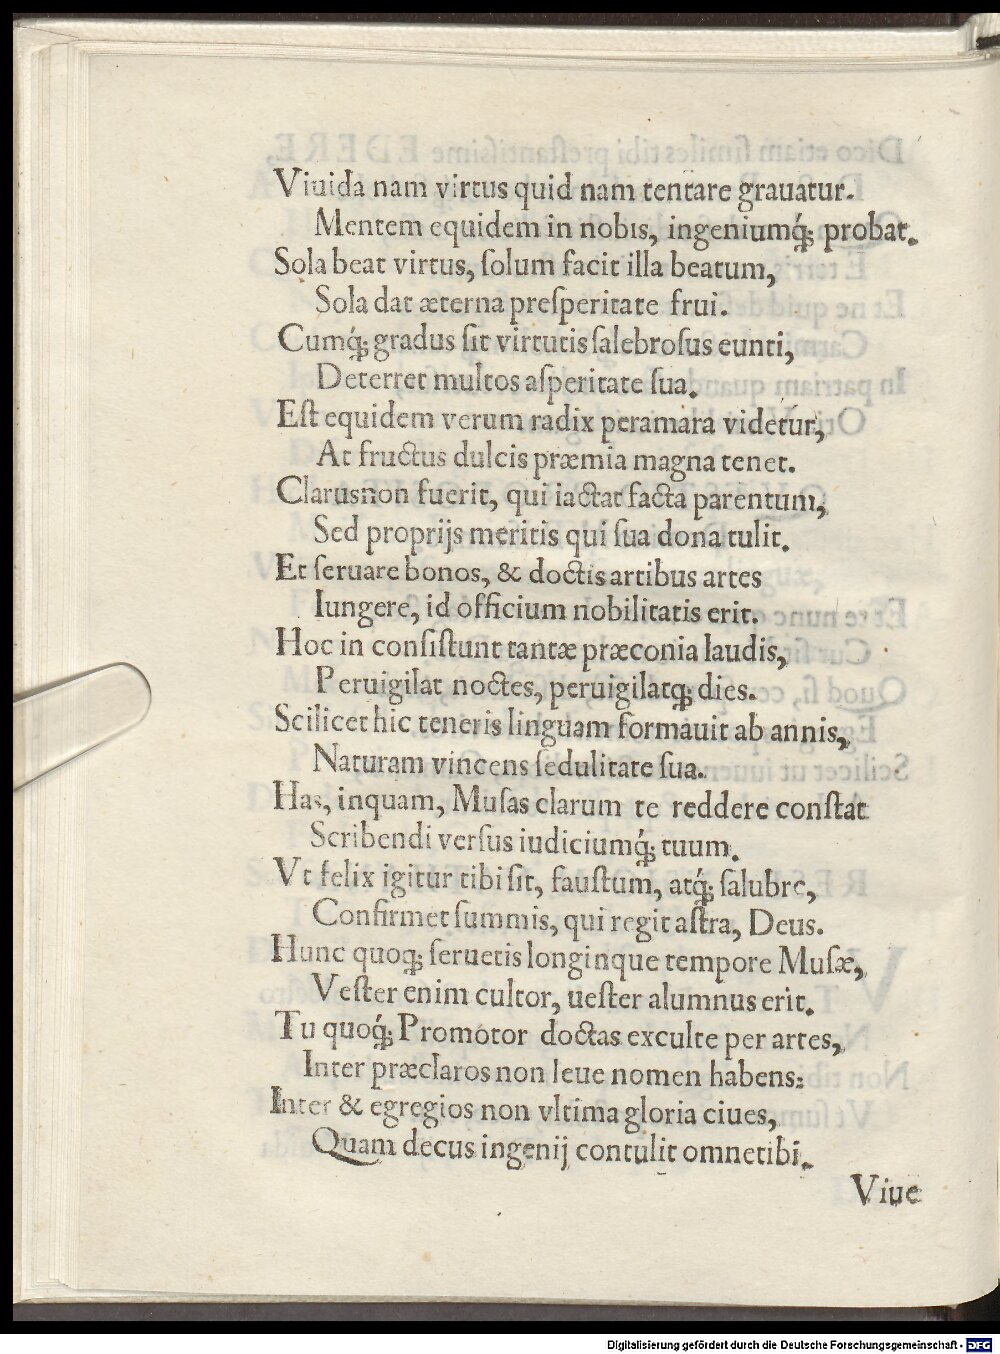 Viuida nam virtus quid nam tentare grauatur.
Mentem equidem in nobis, ingeniumq́; probat.
Sola beat virtus, ſolum facit illa beatum,
Sola dat æterna preſperitate frui.
Cumq́; gradus ſit virtutis ſalebroſus eunti,
Deterret multos aſperitate ſua.
Eſt equidem verum radix peramara videtur,
At fructus dulcis præmia magna tenet.
Clarus non fuerit, qui iactat facta parentum,
Sed proprijs meritis qui ſua dona tulit.
Et ſeruare bonos, & doctis artibus artes
Iungere, id officium nobilitatis erit.
Hoc in conſiſtunt tantæ præconia laudis,
Peruigilat noctes, peruigilatq; dies.
Scilicet hic teneris linguam formauit ab annis,
Naturam vincens ſedulitate ſua.
Has, inquam, Muſas clarum te reddere conſtat
Scribendi verſus iudiciumq́; tuum.
Vt felix igitur tibi ſit, fauſtum, atq́; ſalubre,
Confirmet ſummis, qui regit aſtra, Deus.
Hunc quoq; ſeruetis longinque tempore Muſæ,
Veſter enim cultor, ueſter alumnus erit.
Tu quoq́; Promotor doctas exculte per artes,
Inter præclaros non leue nomen habens:
Inter & egregios non vltima gloria ciues,
Quam decus ingenij contulit omne tibi.
Viue
Digitalisierung gefördert durch die Deutsche Forschungsgemeinschaft - DFG